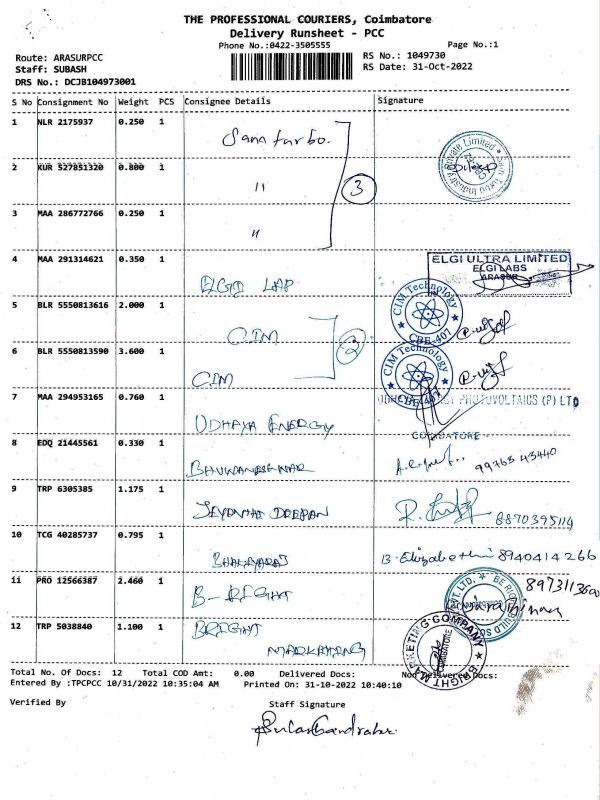 THE PROFESSIONAL COURIERS, Coimbatore
Delivery Runsheet - PCC
Phone No.:0422-3505555
Page No.:1
Route: ARASURPCC
Staff: SUBASH
DRS No.: DCJB104973001
RS No.: 1049730
RS Date: 31-Oct-2022
S No Consignment No Weight PCS Consignee Details Signature
1 NLR 2175937 0.250 1
Sana turbo.
2 KUR 527851320 0.800 1
"
3
3 MAA 286772766 0.250 1
"
4 MAA 291314621 0.350 1
ELGI LAB
ELGI ULTRA LIMITED
ELGI LABS
ARASUR
5 BLR 5550813616 2.000 1
CIM
2
CIM Technology
CBE-407
6 BLR 5550813590 3.600 1
CIM
CIM Technology
7 MAA 294953165 0.760 1
UDHAYA ENERGY
PHOTOVOLTAICS (P) LTD
COIMBATORE
8 EDQ 21445561 0.330 1
99763 43440
9 TRP 6305385 1.175 1
8870395114
10 TCG 40285737 0.795 1
B. Elizabeth 8940414266
11 PRO 12566387 2.460 1
B-RIGHT
12 TRP 5038840 1.100 1
BRIGHT
MARKETING
MARKETING COMPANY
COIMBATORE
Total No. Of Docs: 12 Total COD Amt: 0.00 Delivered Docs: Not Delivered Docs:
Entered By :TPCPCC 10/31/2022 10:35:04 AM Printed On: 31-10-2022 10:40:10
Verified By
Staff Signature